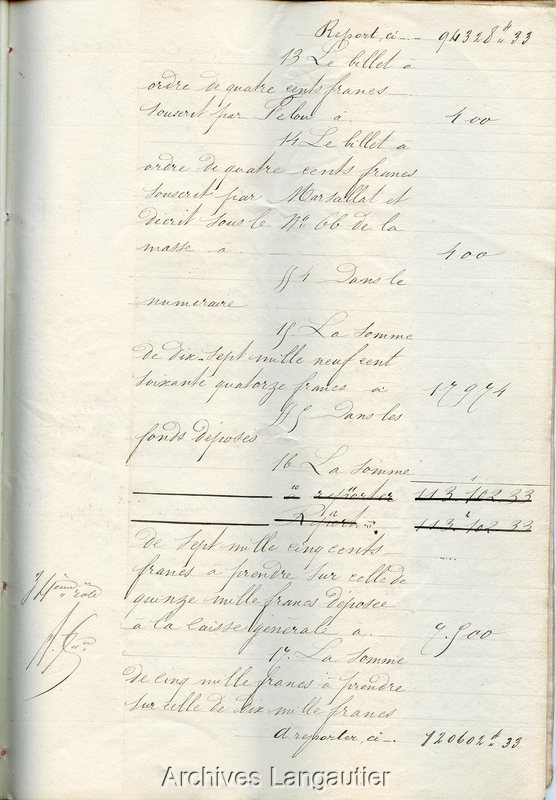 Report, ci - 94328f 33
13 Le billet a
ordre de quatre cents francs
souscrit par Pelou a. 400
14 Le billet a
ordre de quatre cents francs
souscrit par Marsallat et
décrit sous le No 66 de la
masse a 400
§§ 4 Dans le
numeraire
15. La somme
de dix-sept mille neuf cent
soixante quatorze francs a 17974
§§ 5 Dans les
fonds déposés
16 La somme
a reporter 113 102 33
Report 113 102 33
de sept mille cinq cents
francs a prendre sur celle de
quinze mille francs déposée
a la caisse générale a. 7.500
17. La somme
de cinq mille francs a prendre
sur celle de dix mille francs
A reporter, ci - 120602f 33
rôle
Archives Langautier